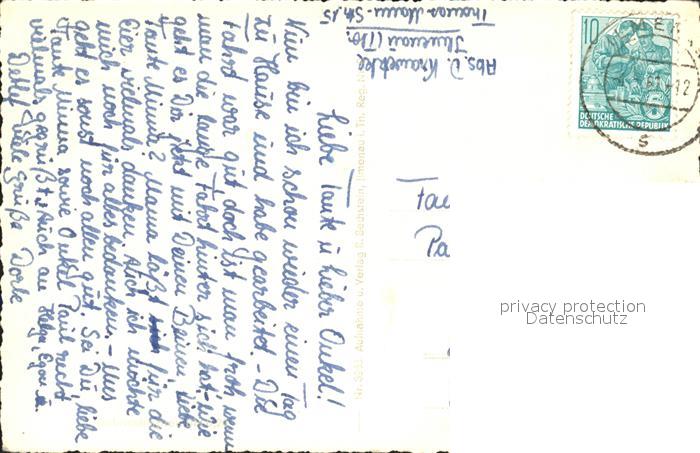 Abs. D. Krawetzke
Ilmenau (Th.)
Thomas-Mann-Str. 15
Liebe Tante u. lieber Onkel!
Nun bin ich schon wieder einen Tag
zu Hause und habe gearbeitet. - Die
Fahrt war gut doch ist man froh wenn
man die lange Fahrt hinter sich hat. - Wie
geht es Dir jetzt mit Deinen Beinen, liebe
Tante Minna? Mama läßt für die
Eier vielmals danken. Auch ich möchte
mich noch für alles bedanken. - Uns
geht es sonst noch allen gut. Sei Du liebe
Tante Minna sowie Onkel Paul recht
vielmals gegrüßt. Auch an Helga, Egon u.
Detlef viele Grüße Dorle
Aufnahme u. Verlag E. Bechstein, Ilmenau i. Th.
10
DEUTSCHE
DEMOKRATISCHE REPUBLIK
MER
12
S
Pa
privacy protection
Datenschutz